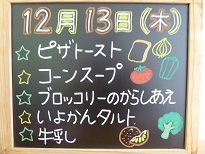 12月13日(木)
☆ピザトースト
☆コーンスープ
☆ブロッコリーのからしあえ
☆いよかんタルト
☆牛乳